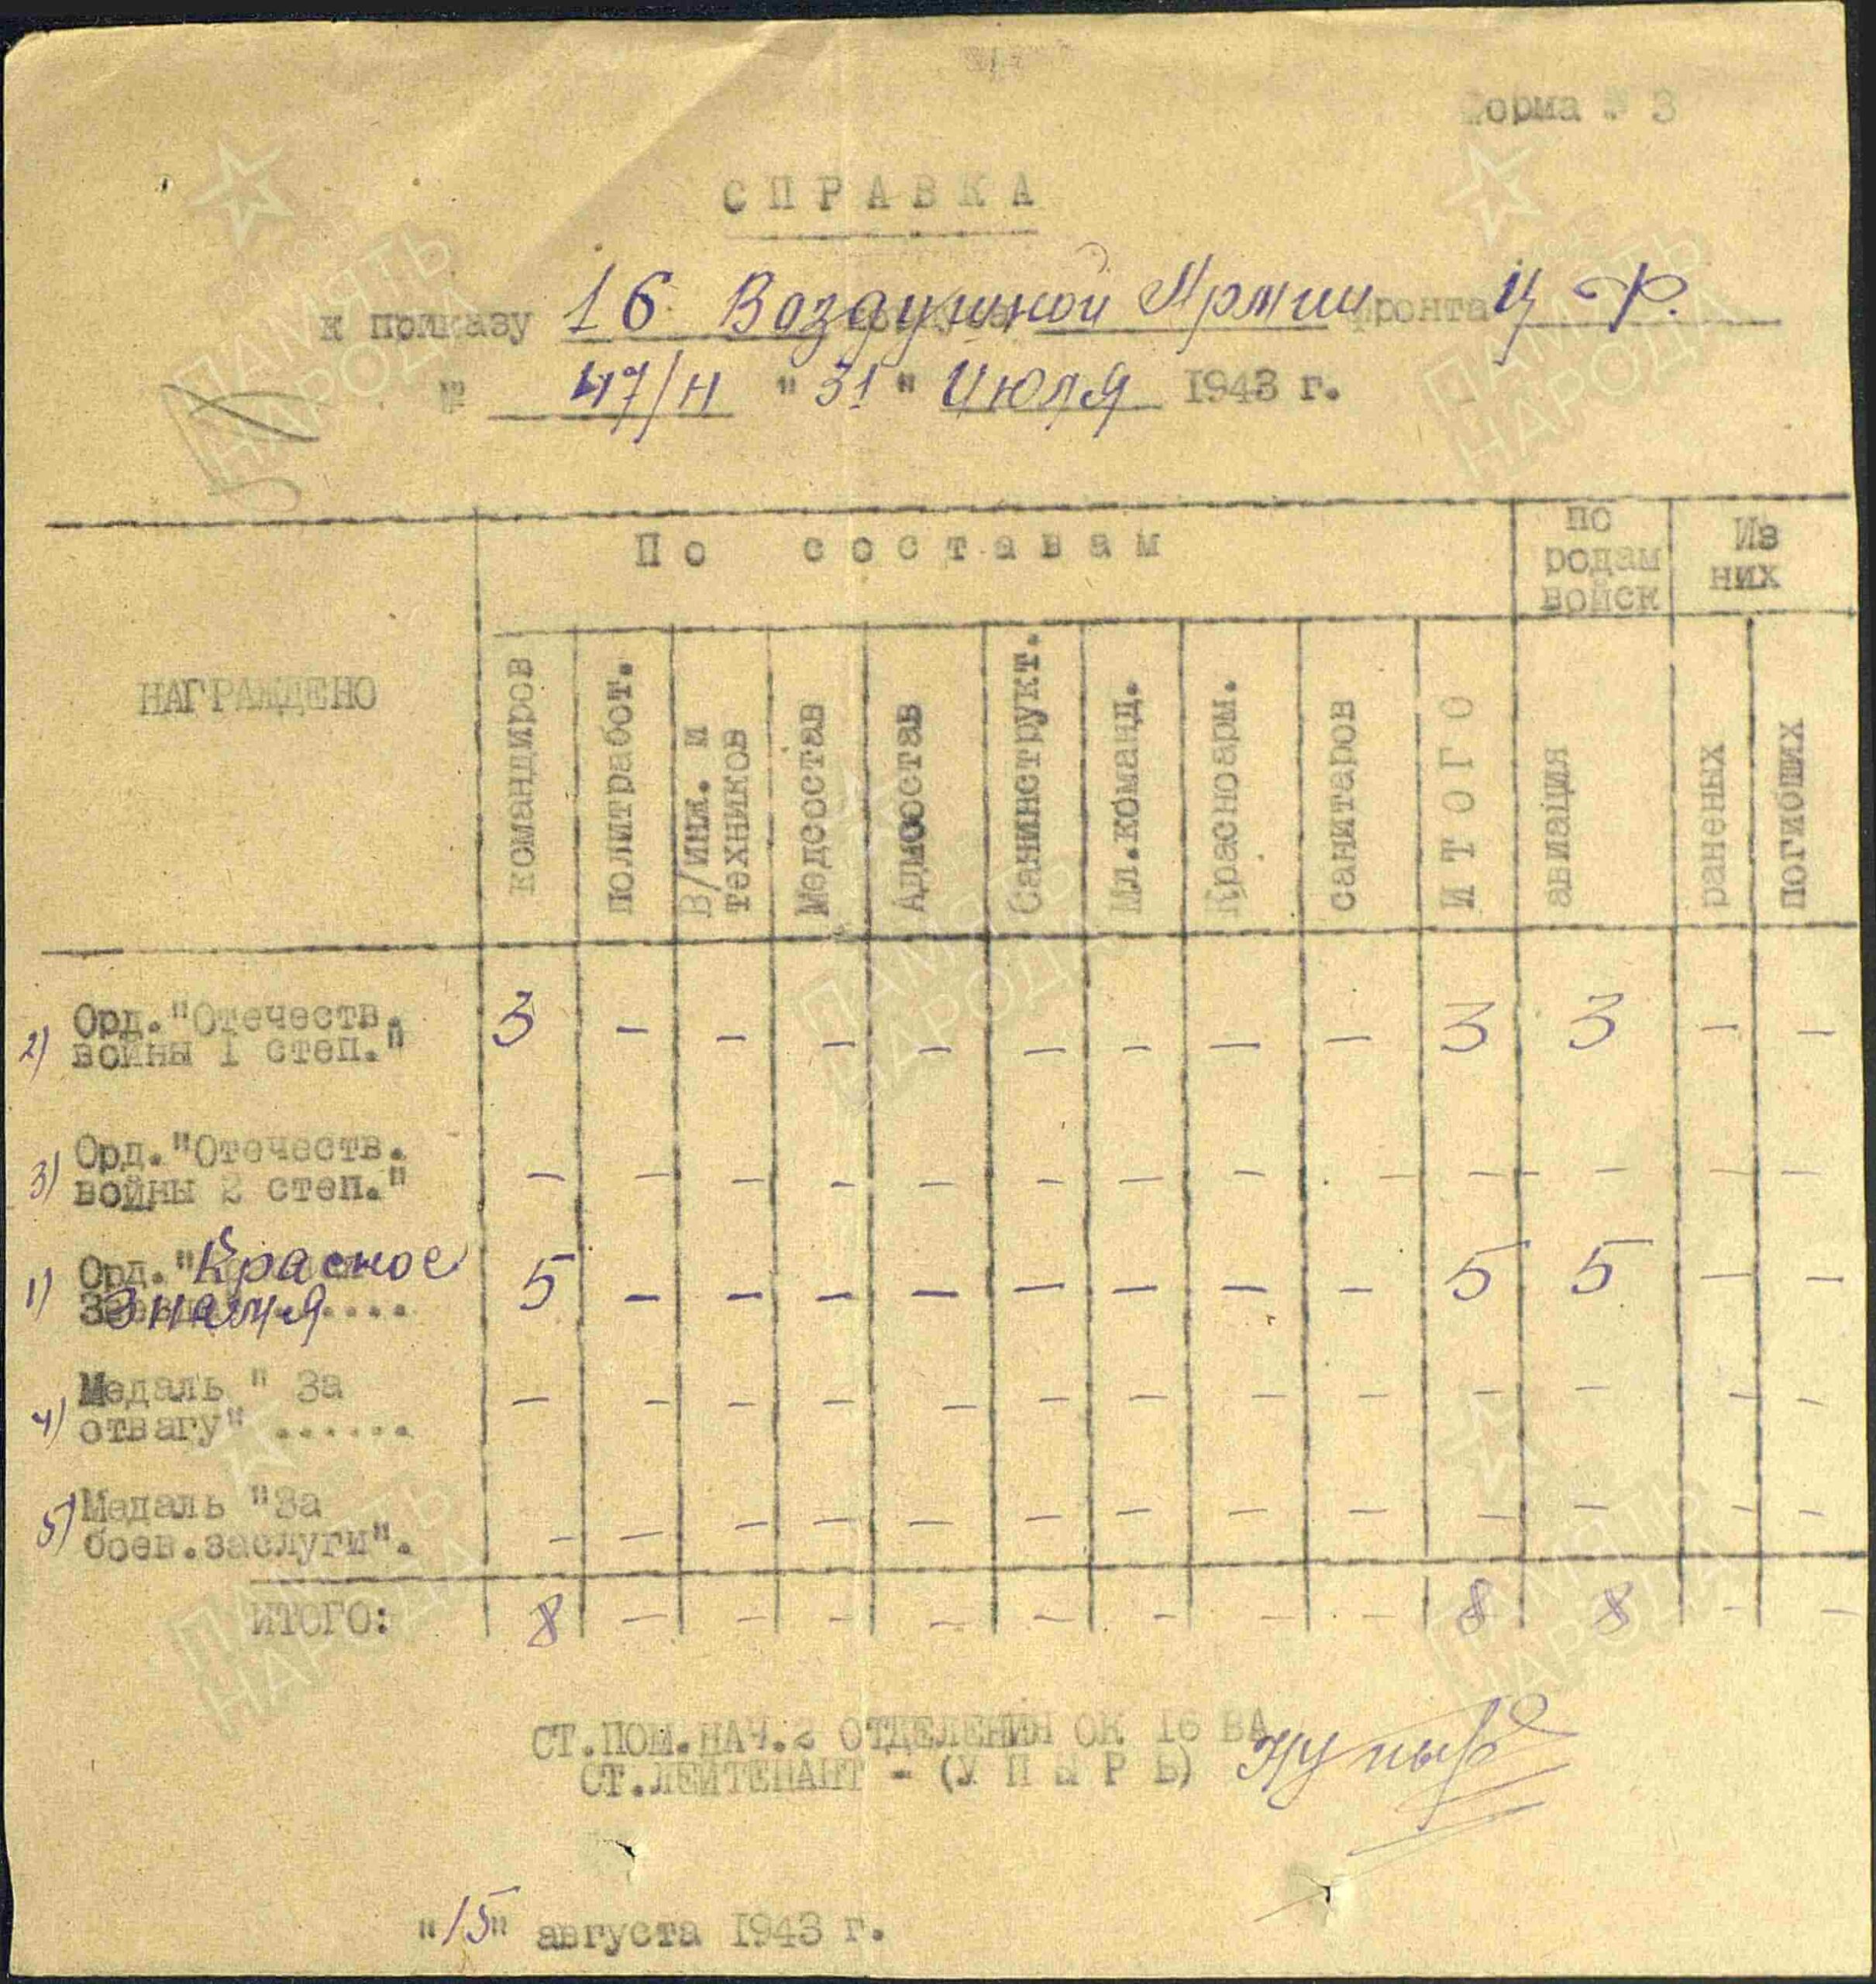 Форма № 3
СПРАВКА
к приказу 16 Воздушной Армии фронта Ц Ф.
№ 47/н "31" Июля 1943 г.
НАГРАЖДЕНО
По составам
по родам войск
Из них
командиров
политработ.
В/инж. и техников
Медсостав
Адмсостав
Санинструкт.
Мл.команд.
Красноарм.
санитаров
ИТОГО
авиация
раненых
погибших
2) Орд."Отечеств. войны 1 степ." 3 - - - - - - - - 3 3 - -
3) Орд."Отечеств. войны 2 степ." - - - - - - - - - - - - -
1) Орд."Красное Знамя .... 5 - - - - - - - - 5 5 - -
4) Медаль " За отвагу" ...... - - - - - - - - - - - - -
5) Медаль "За боев.заслуги". - - - - - - - - - - - - -
ИТОГО: 8 - - - - - - - - 8 8 - -
СТ.ПОМ.НАЧ.2 ОТДЕЛЕНИЯ ОК 16 ВА
СТ.ЛЕЙТЕНАНТ - (УПЫРЬ)
"15" августа 1943 г.
ПАМЯТЬ НАРОДА